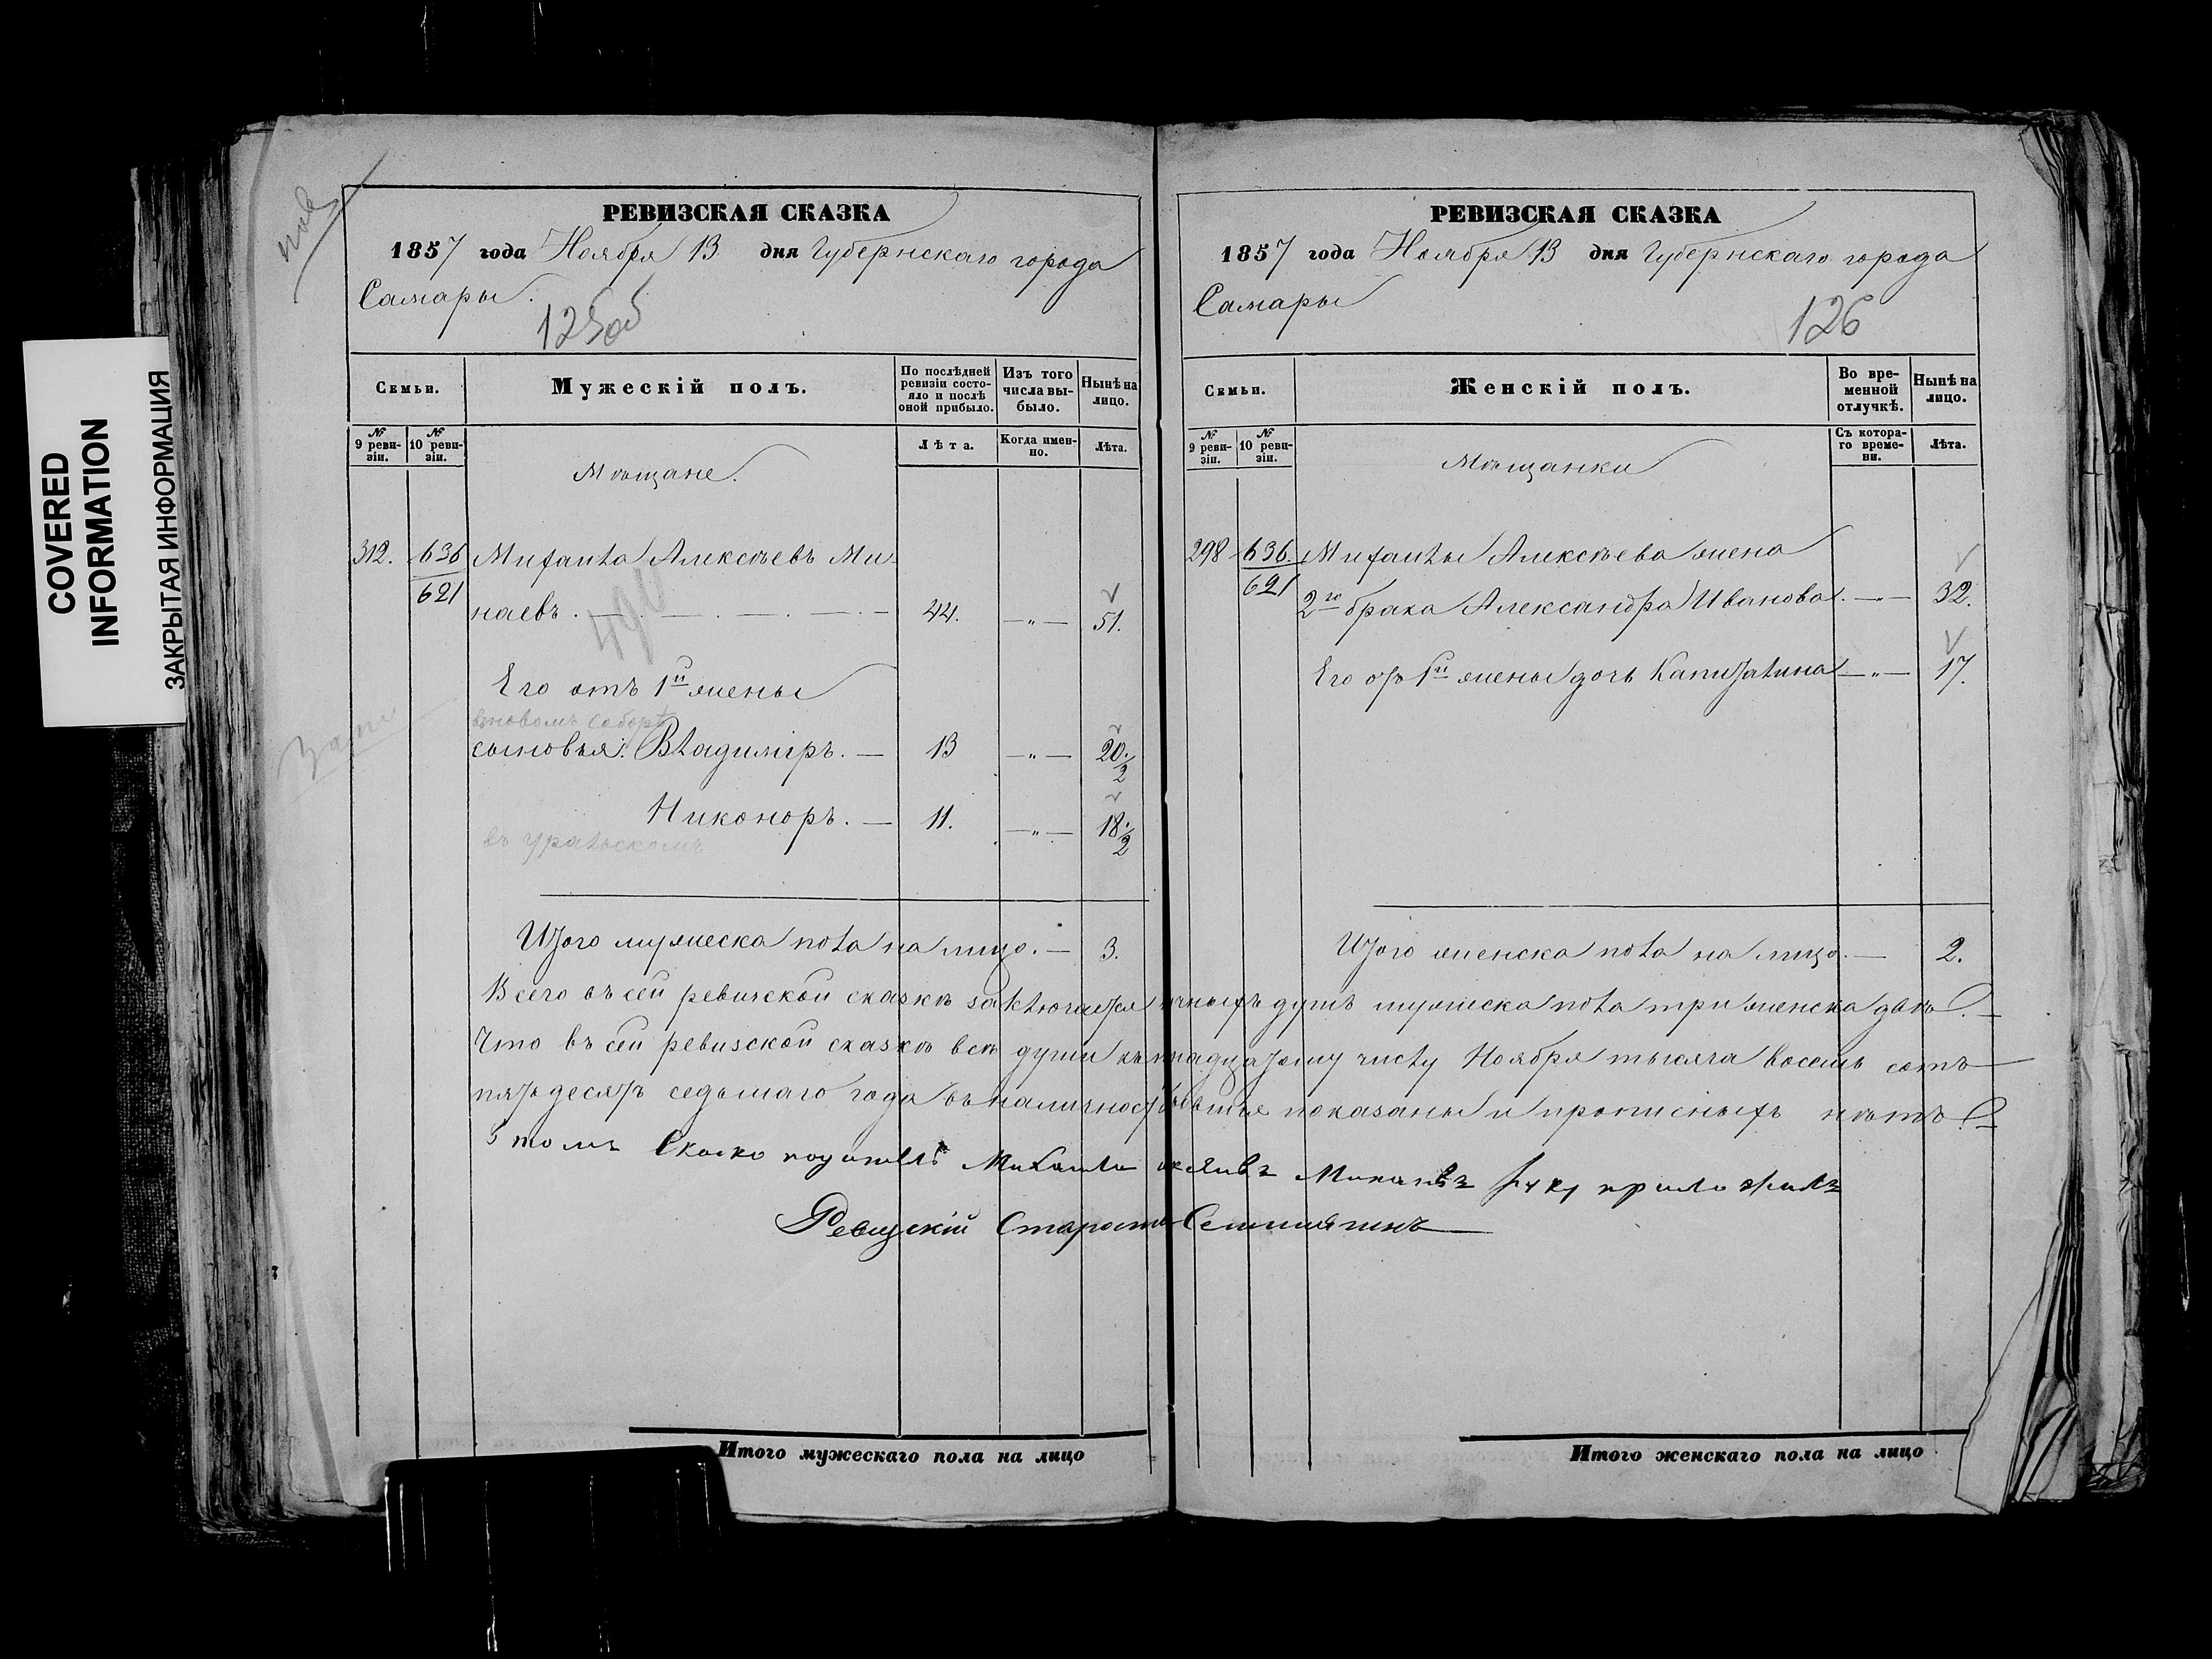 COVERED
INFORMATION
ЗАКРЫТАЯ ИНФОРМАЦИЯ
РЕВИЗСКАЯ СКАЗКА
1857 года Ноября 13 дня Губернскаго города
Самары.
125об
Семьи.
Мужескій полъ.
По послѣдней ревизіи состояло и послѣ оной прибыло.
Изъ того числа выбыло.
Нынѣ на лицо.
№ 9 ревизіи.
№ 10 ревизіи.
Лѣта.
Когда именно.
Лѣта.
Мѣщане.
312. 636 Михайла Алексѣевъ Ми-
621 наевъ. 44. —"— 51.
490
Его отъ 1й жены
въ новомъ соборѣ
сыновья: Владиміръ. — 13 —"— 20 1/2
Никоноръ. — 11. —"— 18 1/2
въ уральскомъ
Итого мужеска пола на лицо. — 3.
РЕВИЗСКАЯ СКАЗКА
1857 года Ноября 13 дня Губернскаго города
Самары
126
Семьи.
Женскій полъ.
Во временной отлучкѣ.
Нынѣ на лицо.
№ 9 ревизіи.
№ 10 ревизіи.
Съ котораго времени.
Лѣта.
Мѣщанки
298 636. Михайлы Алексѣева жена
621 2го брака Александра Иванова. —"— 32.
Его отъ 1й жены дочь Капиталина —"— 17.
Итого женска пола на лицо. — 2.
Всего въ сей ревизской сказкѣ заключается душъ мужеска пола три женска двѣ.
Что въ сей ревизской сказкѣ всѣ души числу Ноября тысяча восемь сотъ
пятьдесятъ седьмаго года въ наличности показаны и прописныхъ нѣтъ
томъ Михаила Минаевъ руку приложилъ
Ревизскій Староста
Итого мужескаго пола на лицо
Итого женскаго пола на лицо